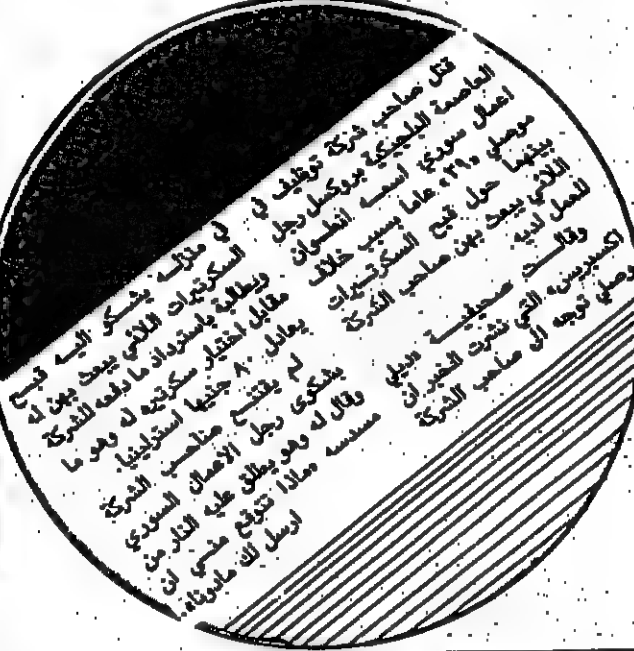 قتل صاحب شركة توظيف في
العاصمة البلجيكية بروكسل رجل
اعمال سوري اسمه انطوان
موصلي «٢٩» عاما بسبب خلاف
بينهما حول قبح السكرتيرات
اللائي يبعث بهن صاحب الشركة
للعمل لديه
وقالت صحيفة «ديلي
اكسبريس» التي نشرت الخبر ان
موصلي توجه الى صاحب الشركة
في منزله يشكو اليه قبح
السكرتيرات اللائي يبعث بهن له
ويطالبه باسترداد ما دفعه للشركة
مقابل اختيار سكرتيره له وهو ما
يعادل ٨٠ جنيها استرلينيا.
لم يقتنع صاحب الشركة
بشكوى رجل الاعمال السوري
وقال له وهو يطلق عليه النار من
مسدسه «ماذا تتوقع مني ان
ارسل لك مادونا».